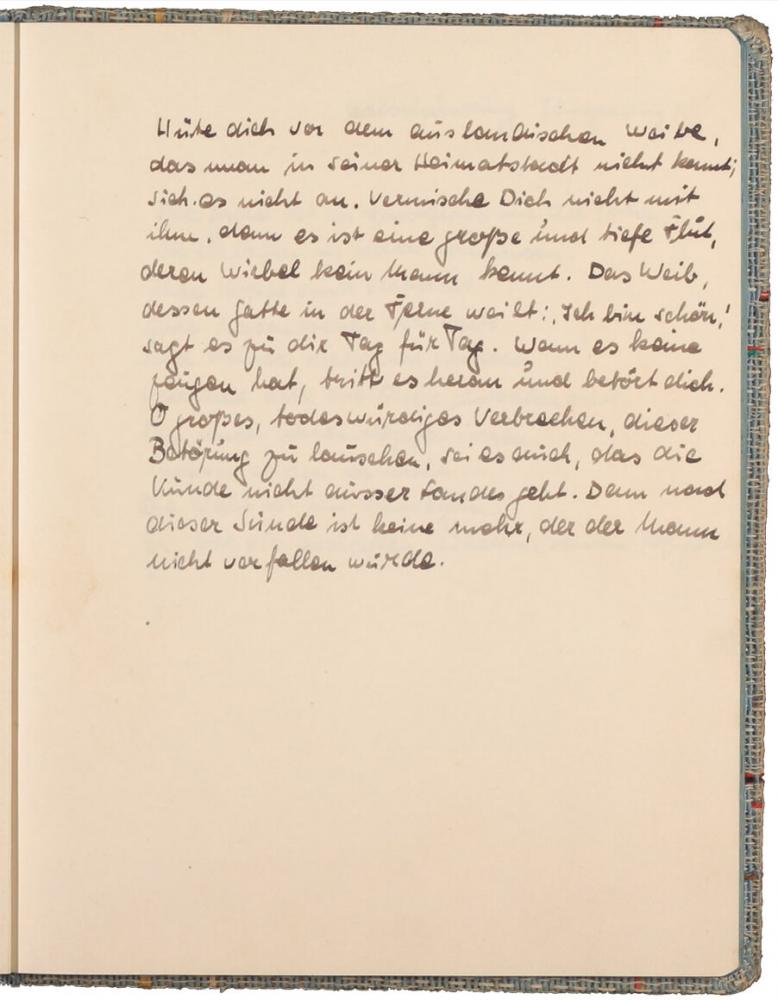 Hüte dich vor dem ausländischen Weibe,
das man in seiner Heimatstadt nicht kennt;
sieh es nicht an. Vermische Dich nicht mit
ihm, denn es ist eine große und tiefe Flut,
deren Wirbel kein Mann kennt. Das Weib,
dessen Gatte in der Ferne weilt: „Ich bin schön,"
sagt es zu dir Tag für Tag. Wenn es keine
Zeugen hat, tritt es heran und betört dich.
O großes, todeswürdiges Verbrechen, dieser
Betörung zu lauschen, sei es auch, das die
Kunde nicht ausser Landes geht. Denn nach
dieser Sünde ist keine mehr, der der Mann
nicht verfallen würde.